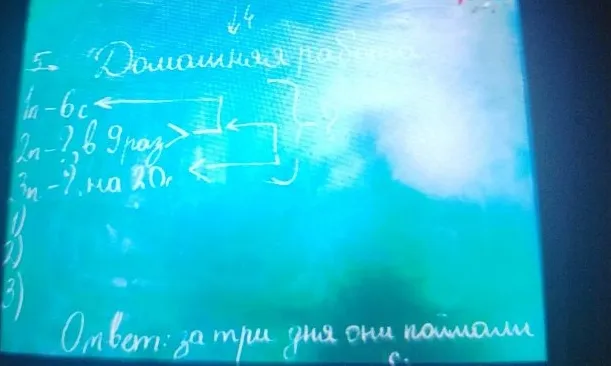 4
Домашняя работа
1п - 6с
2п - ?, в 9 раз >
3п - ?, на 20
1)
2)
3)
Ответ: за три дня они поймали